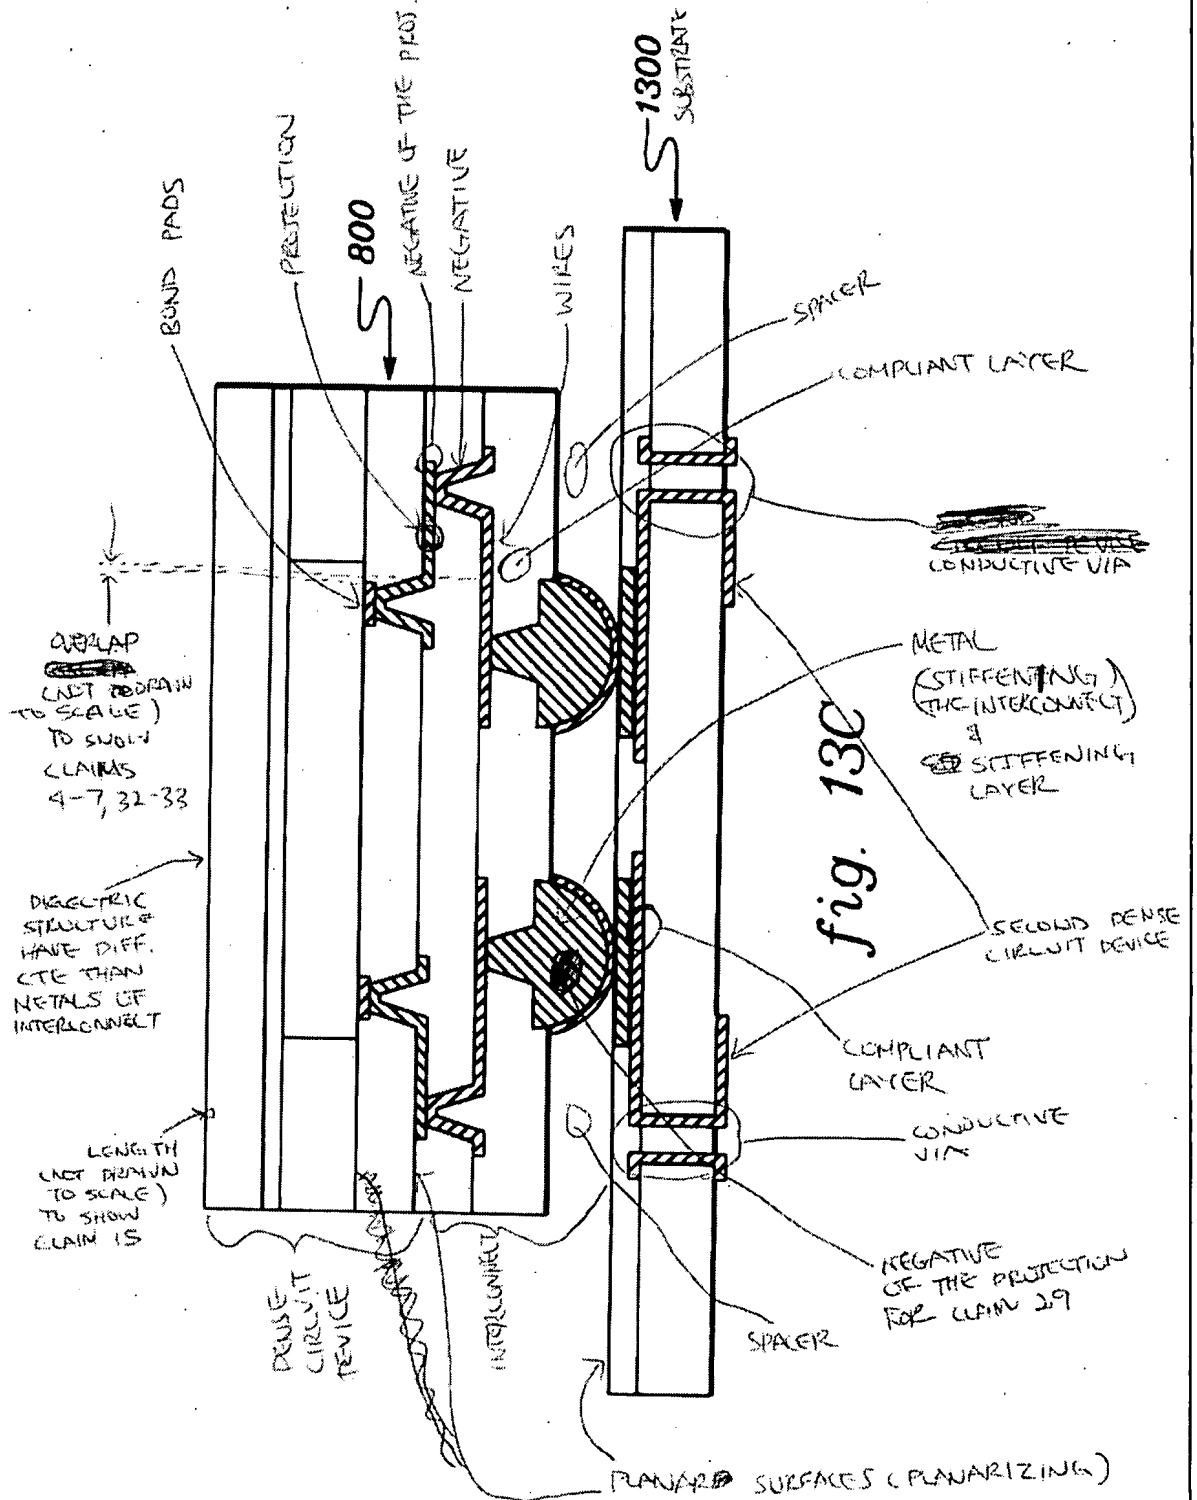 BOND PADS
PROJECTION
800
NEGATIVE OF THE PROJ.
NEGATIVE
WIRES
1300
SUBSTRATE
SPACER
COMPLIANT LAYER
CONDUCTIVE VIA
METAL
(STIFFENING)
(THE INTERCONNECT)
&
STIFFENING
LAYER
fig. 13C
SECOND DENSE
CIRCUIT DEVICE
COMPLIANT
LAYER
CONDUCTIVE
VIA
NEGATIVE
OF THE PROJECTION
FOR CLAIM 29
SPACER
PLANAR SURFACES (PLANARIZING)
INTERCONNECT
DENSE
CIRCUIT
DEVICE
OVERLAP
(NOT DRAWN
TO SCALE)
TO SHOW
CLAIMS
4-7, 32-33
DIELECTRIC
STRUCTURE
HAVE DIFF.
CTE THAN
METALS OF
INTERCONNECT
LENGTH
(NOT DRAWN
TO SCALE)
TO SHOW
CLAIM 15